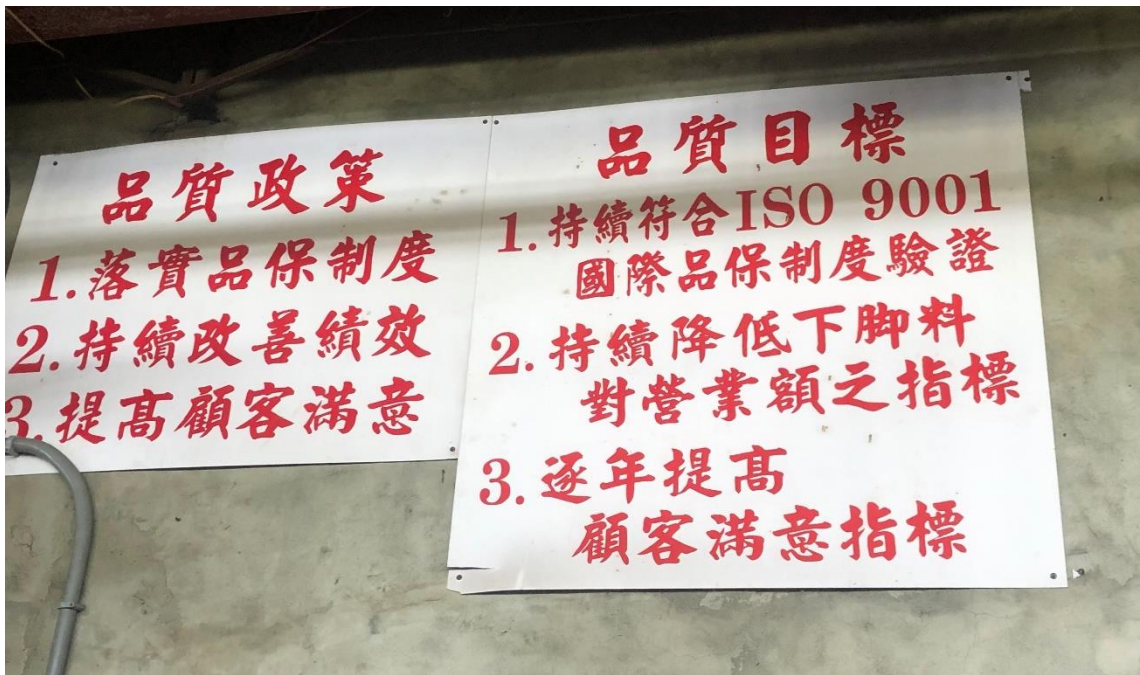 品質政策
1.落實品保制度
2.持續改善績效
3.提高顧客滿意
品質目標
1.持續符合ISO 9001
國際品保制度驗證
2.持續降低下脚料
對營業額之指標
3.逐年提高
顧客滿意指標